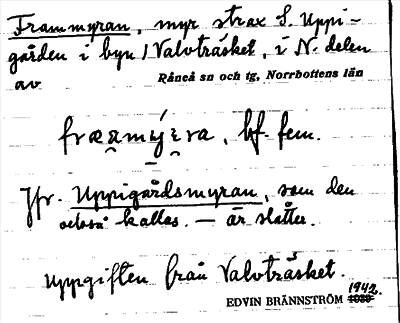 Frammyran, myr strax S. Uppi-
gården i byn Valvträsket, i N. delen
av Råneå sn och tg, Norrbottens län
bf. fem.
Jfr. Uppigårdsmyran, som den
också kallas. — är slåtter.
Uppgiften från Valvträsket.
1942.
EDVIN BRÄNNSTRÖM 1939